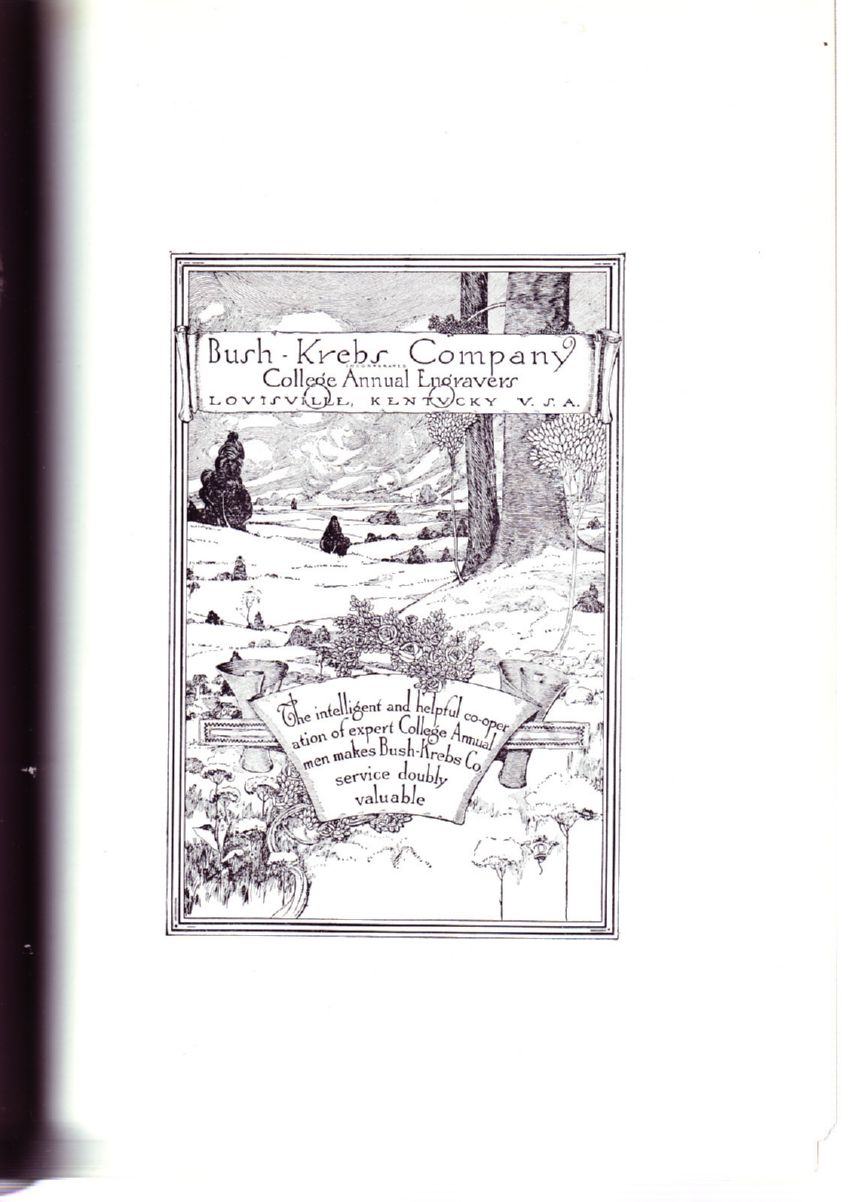 Bush-Krebs Company
INCORPORATED
College Annual Engravers
LOVISVILLE, KENTVCKY V.S.A.
The intelligent and helpful co-oper
ation of expert College Annual
men makes Bush-Krebs Co
service doubly
valuable